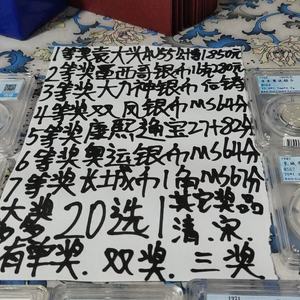 1等奖袁大头AU55分值1850元
2等奖墨西哥银币值280元
3等奖大力神银币
4等奖双凤银币MS64分
5等奖康熙通宝27+82分
6等奖奥运银币MS64分
7等奖长城币1角MS67分
大奖20选1其它奖品
清.宋
有单奖.双奖.三奖